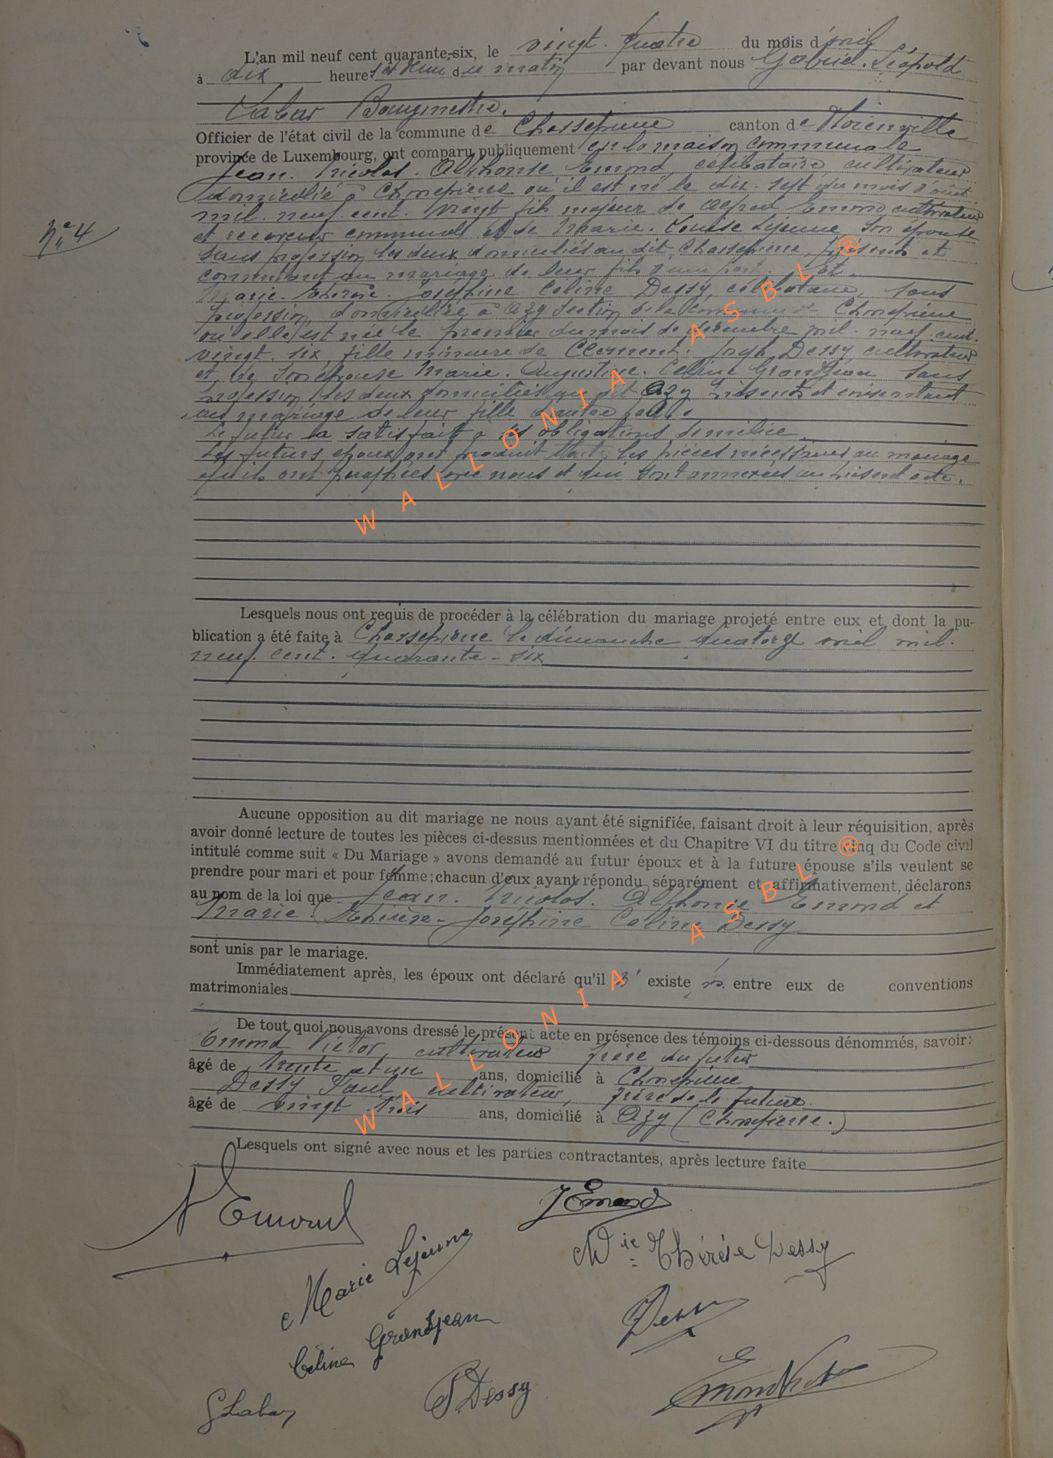 N° 4
L'an mil neuf cent quarante-six, le vingt-quatre du mois d'avril
à dix heures du matin par devant nous Gabriel-Léopold
Labar Bourgmestre.
Officier de l'état civil de la commune de Chassepierre canton de Florenville
province de Luxembourg, ont comparu publiquement en la maison communale
Jean-Nicolas-Alphonse Emond célibataire cultivateur
domicilié à Chassepierre où il est né le dix-sept du mois d'août
mil neuf cent vingt fils majeur de Alfred Emond cultivateur
et receveur communal et de Marie-Louise Lejeune son épouse
sans profession les deux domiciliés au dit Chassepierre, présents et
consentant au mariage de leur fils d'une part. Et
Marie-Thérèse-Joséphine Céline Dessy, célibataire, sans
profession, domiciliée à Azy section de la commune de Chassepierre
où elle est née le premier du mois de décembre mil neuf cent
vingt-six, fille mineure de Clément-Joseph Dessy cultivateur
et de son épouse Marie-Augustine-Céline Grandjean sans
profession les deux domiciliés au dit Azy présents et consentant
au mariage de leur fille d'autre part.
Le futur a satisfait à ses obligations de milice
Les futurs époux ont produit les pièces nécessaires au mariage
qu'ils ont paraphées avec nous et qui sont annexées au présent acte.
Lesquels nous ont requis de procéder à la célébration du mariage projeté entre eux et dont la pu-
blication a été faite à Chassepierre le dimanche quatorze avril mil
neuf cent quarante-six
Aucune opposition au dit mariage ne nous ayant été signifiée, faisant droit à leur réquisition, après
avoir donné lecture de toutes les pièces ci-dessus mentionnées et du Chapitre VI du titre cinq du Code civil
intitulé comme suit « Du Mariage » avons demandé au futur époux et à la future épouse s'ils veulent se
prendre pour mari et pour femme; chacun d'eux ayant répondu séparément et affirmativement, déclarons
au nom de la loi que Jean-Nicolas-Alphonse Emond et
Marie-Thérèse-Joséphine Céline Dessy
sont unis par le mariage.
Immédiatement après, les époux ont déclaré qu'il existe entre eux de conventions
matrimoniales
De tout quoi nous avons dressé le présent acte en présence des témoins ci-dessous dénommés, savoir:
Emond Victor, cultivateur frère du futur
âgé de trente et un ans, domicilié à Chassepierre
Dessy Paul cultivateur, frère de la future
âgé de vingt trois ans, domicilié à Azy (Chassepierre.)
Lesquels ont signé avec nous et les parties contractantes, après lecture faite
A Emond
J Emond
Marie Lejeune
Mie Thérèse Dessy
Céline Grandjean
Dessy
G Labar
P. Dessy
Emond Victor
WALLONIA ASBL®
WALLONIA ASBL®